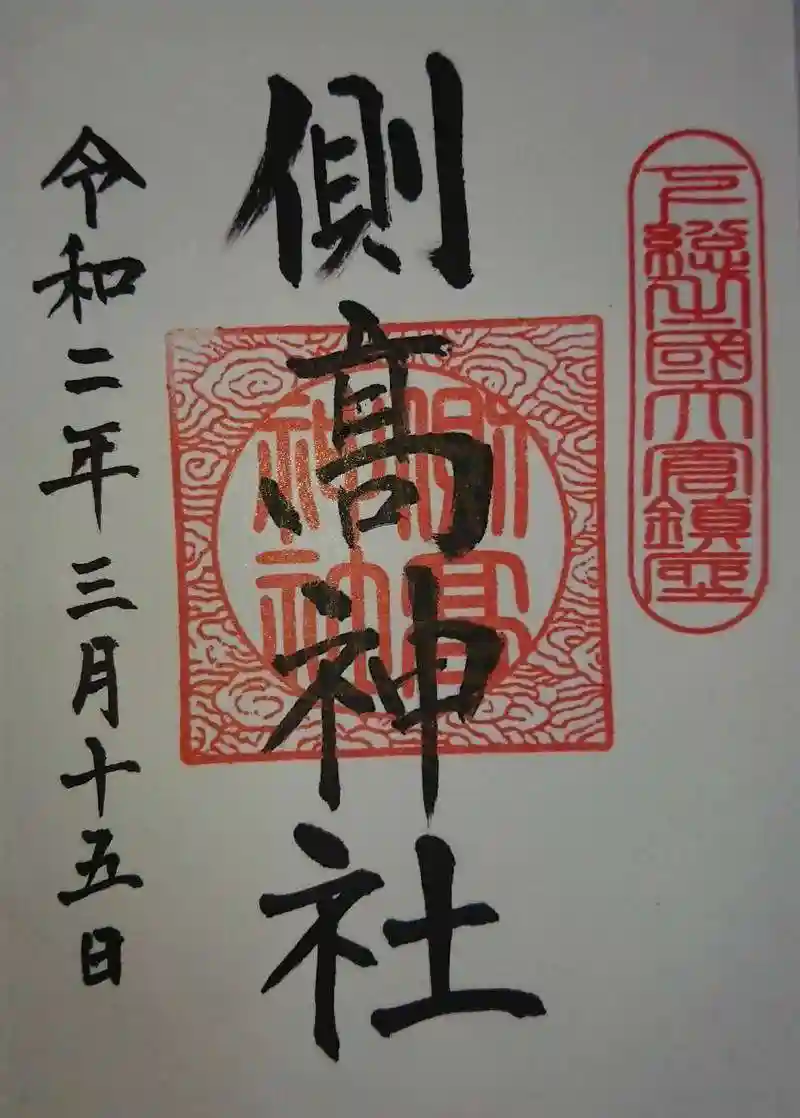 下総国大倉鎮座
側高神社
側高神社
令和二年三月十五日